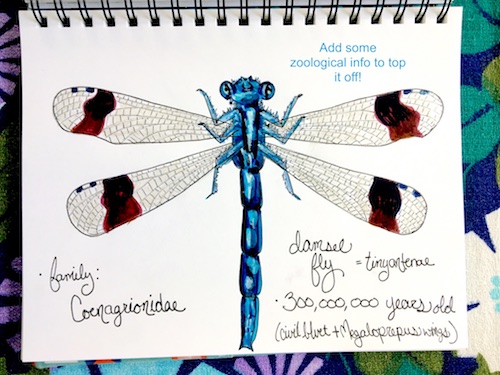 Add some
zoological info to top
it off!
· family:
Coenagrionidae
damsel
fly = tiny antenae
· 300,000,000 years old
(civil + Megaloprepus wings)